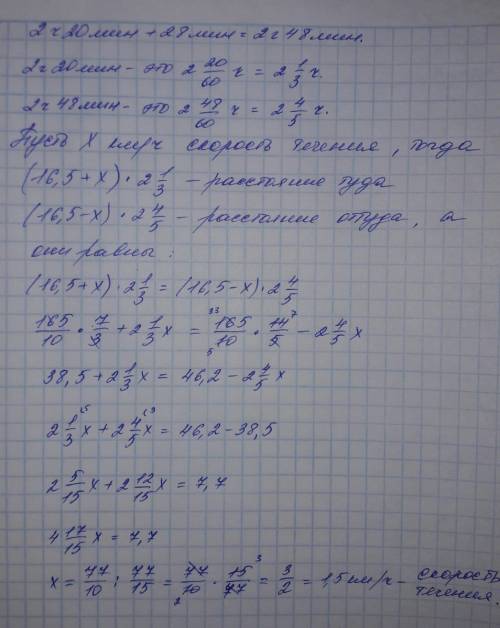 2 ч 20 мин + 28 мин = 2 ч 48 мин.
2 ч 20 мин - это 2 20/60 ч = 2 1/3 ч.
2 ч 48 мин - это 2 48/60 ч = 2 4/5 ч.
Пусть х км/ч скорость течения, тогда
(16,5+х) · 2 1/3 - расстояние туда
(16,5-х) · 2 4/5 - расстояние оттуда, а
они равны:
(16,5+х) · 2 1/3 = (16,5-х) · 2 4/5
165/10 · 7/3 + 2 1/3 х = 165/10 · 14/5 - 2 4/5 х
38,5 + 2 1/3 х = 46,2 - 2 4/5 х
2 1/3 х + 2 4/5 х = 46,2 - 38,5
2 5/15 х + 2 12/15 х = 7,7
4 17/15 х = 7,7
х = 77/10 : 77/15 = 77/10 · 15/77 = 3/2 = 1,5 км/ч - скорость
течения.